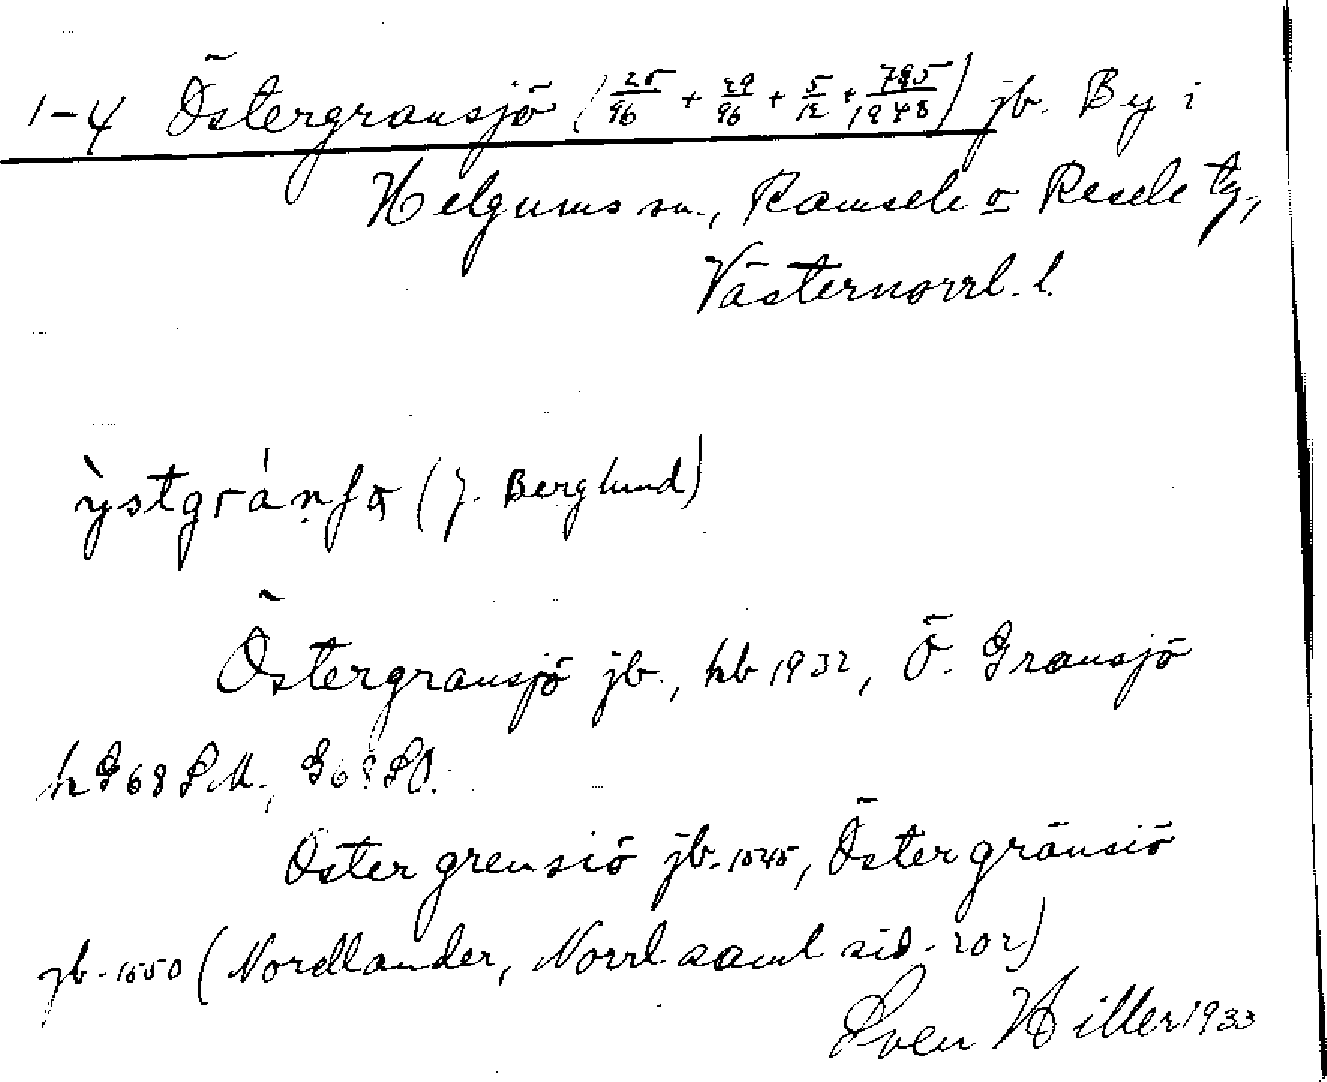 1-4 Östergransjö (25/96 + 29/96 + 5/12 + 785/1248) jb. By i
Helgums sn., Ramsele o Resele tg,
Västernorrl. l.
(J. Berglund)
Östergransjö jb., hb 1932, Ö. Gransjö
hG68SM., G68SO.
Öster grensiö jb. 1545, Östergränsiö
jb. 1550 (Nordlander, Norrl saml sid. 202)
Sven Hiller 1933